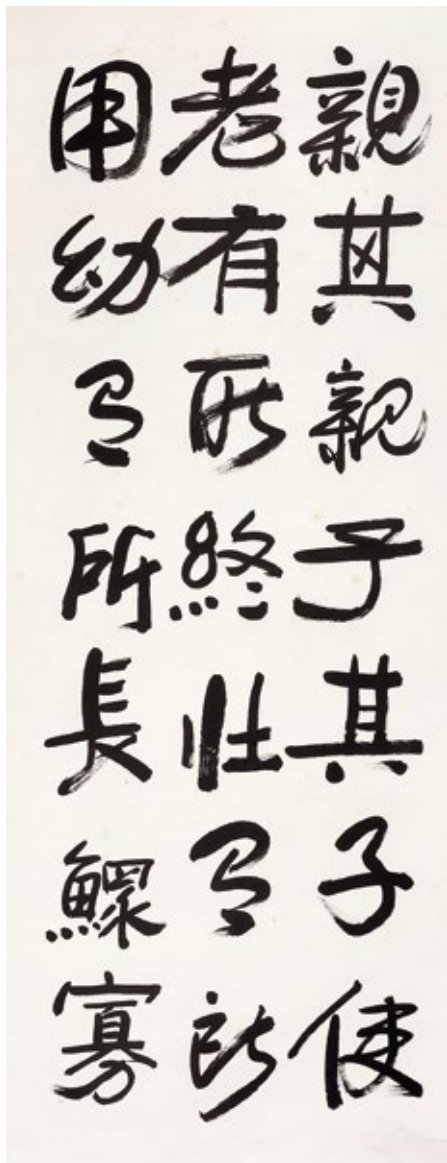 親其親子其子使
老有所終壯有所
用幼有所長鰥寡